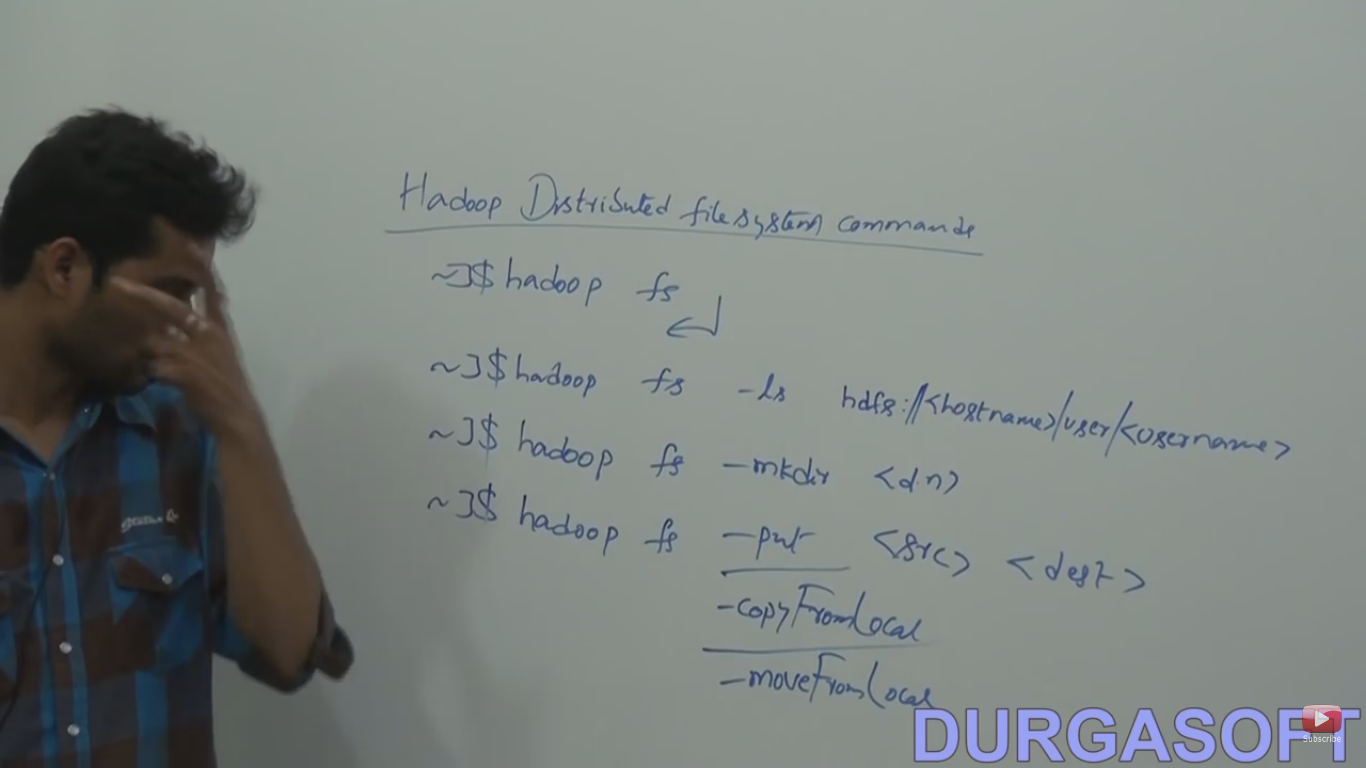 Hadoop Distributed filesystem commands
~]$ hadoop fs
~]$ hadoop fs -ls hdfs://<hostname>/user/<username>
~]$ hadoop fs -mkdir <dn>
~]$ hadoop fs -put <src> <dest>
-copyFromLocal
-moveFromLocal
DURGASOFT
Subscribe